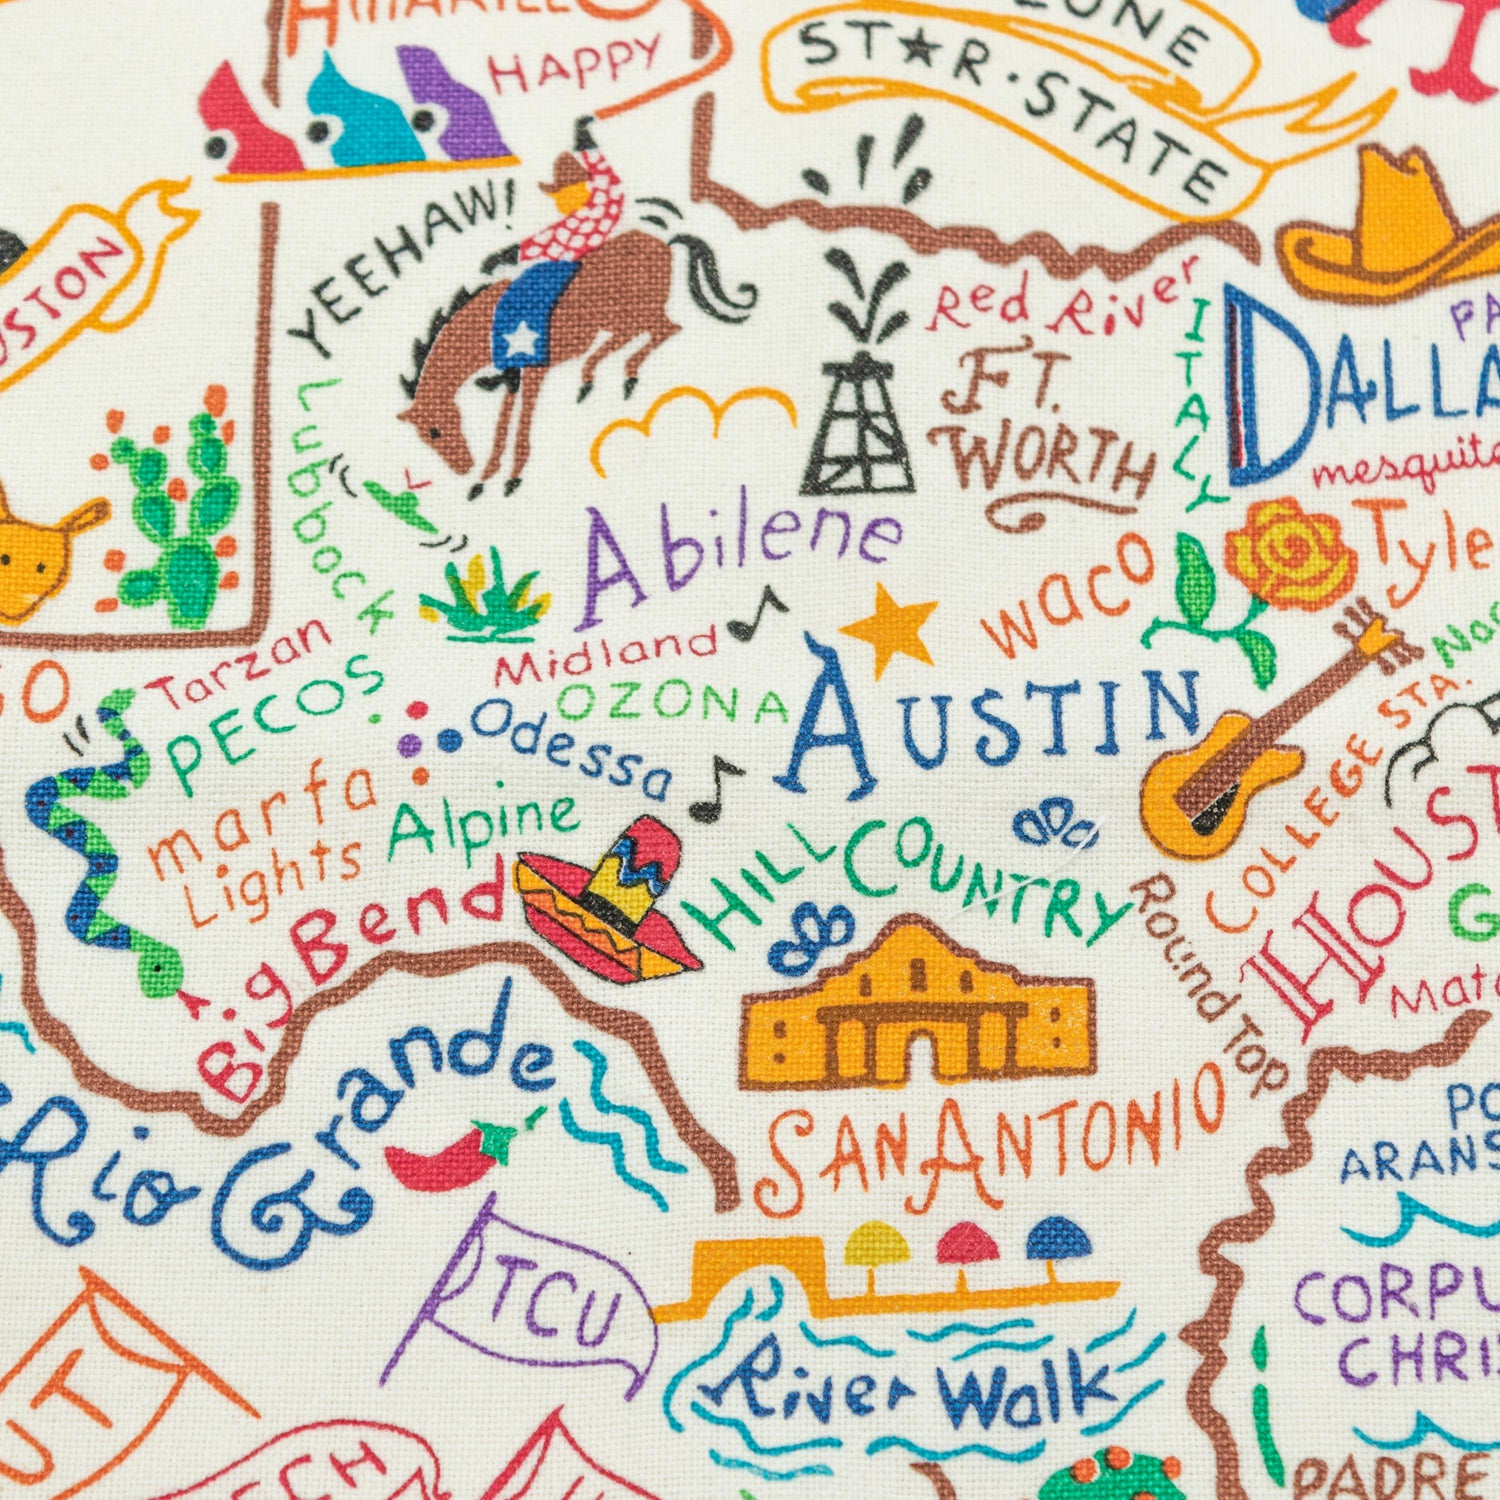 AMARILLO
HAPPY
LONE
STAR·STATE
YEEHAW!
Red River
FT.
WORTH
ITALY
DALLA
PA
mesquite
Lubbock
Abilene
waco
Tyle
Tarzan
PECOS
Midland
OZONA
Odessa
AUSTIN
COLLEGE STA.
marfa
Lights
Alpine
HILL COUNTRY
HOUST
G
Mata
Big Bend
Round Top
Rio Grande
SAN ANTONIO
PO
ARANS
TCU
River Walk
CORPU
CHRI
UT
ECH
PADRE